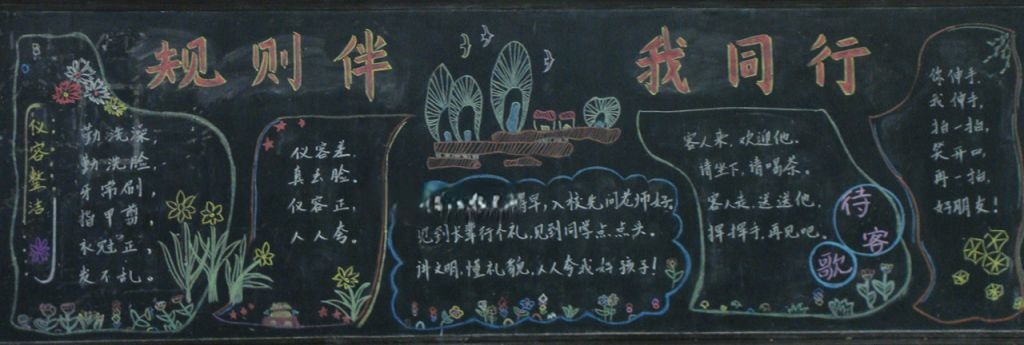 规则伴
我同行
仪容整洁
勤洗澡，
勤洗脸，
牙常刷，
指甲剪，
衣冠正，
发不乱。
仪容差，
真丢脸。
仪容正，
人人夸。
得早，入校先问老师好。
见到长辈行个礼，见到同学点点头。
讲文明，懂礼貌，人人夸我好孩子！
客人来，欢迎他，
请坐下，请喝茶。
客人走，送送他，
挥挥手，再见吧。
待客歌
你伸手，
我伸手，
拍一拍，
笑开口，
再一拍，
好朋友！